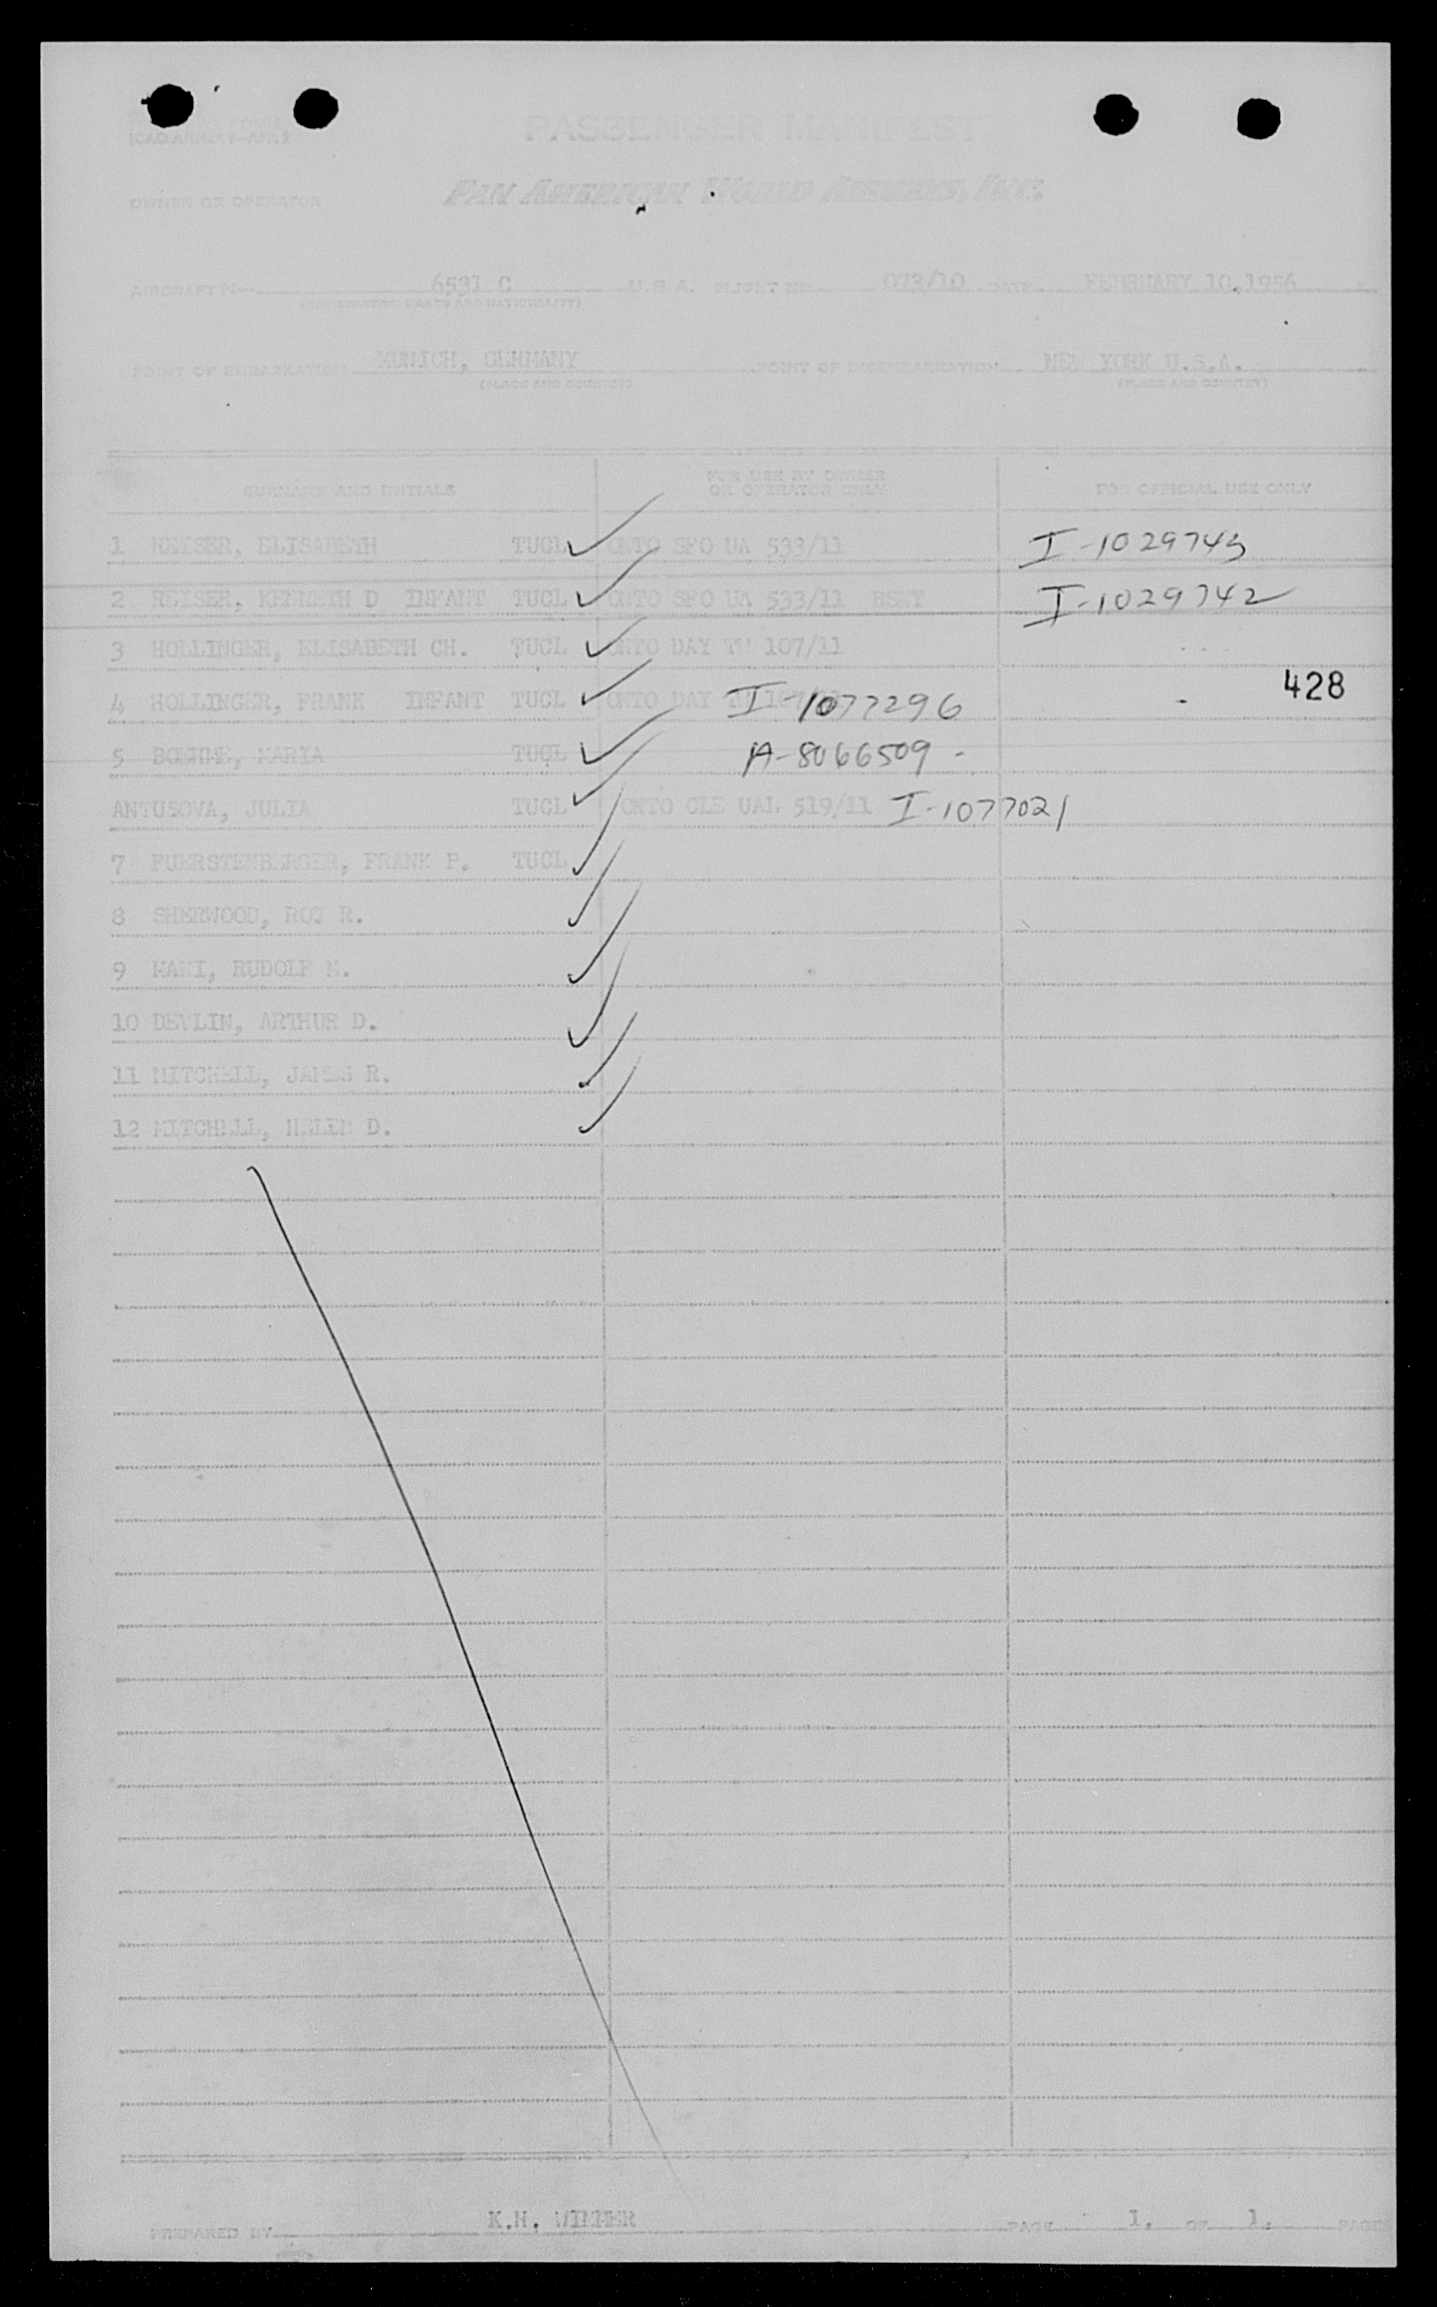 PASSENGER MANIFEST
PAN AMERICAN WORLD AIRWAYS, INC.
OWNER OR OPERATOR
AIRCRAFT No. 6531 C U.S.A. FLIGHT No. 073/10 DATE FEBRUARY 10,1956
(REGISTRATION MARKS AND NATIONALITY)
POINT OF EMBARKATION MUNICH, GERMANY POINT OF DISEMBARKATION NEW YORK U.S.A.
(PLACE AND COUNTRY) (PLACE AND COUNTRY)
SURNAME AND INITIALS FOR USE BY OWNER OR OPERATOR ONLY FOR OFFICIAL USE ONLY
1 REISER, ELISABETH TUCL ✓ ONTO SFO UA 533/11 I-1029743
2 REISER, KENNETH D INFANT TUCL ✓ ONTO SFO UA 533/11 I-1029742
3 HOLLINGER, ELISABETH CH. TUCL ✓ ONTO DAY TW 107/11
4 HOLLINGER, FRANK INFANT TUCL ✓ ONTO DAY TW 107/11 I-1077296
428
5 MARIA TUCL ✓ A-8066509 -
ANTUSOVA, JULIA TUCL ✓ ONTO CLE UAL 519/11 I-1077021
7 FUERSTENBERGER, FRANK P. TUCL ✓
8 SHERWOOD, ROY R. ✓
9 MAKI, RUDOLF ✓
10 DEVLIN, ARTHUR D. ✓
11 MITCHELL, JAMES R. ✓
12 MITCHELL, HELEN D. ✓
PREPARED BY K.H. WIMMER PAGE 1. OF 1. PAGES